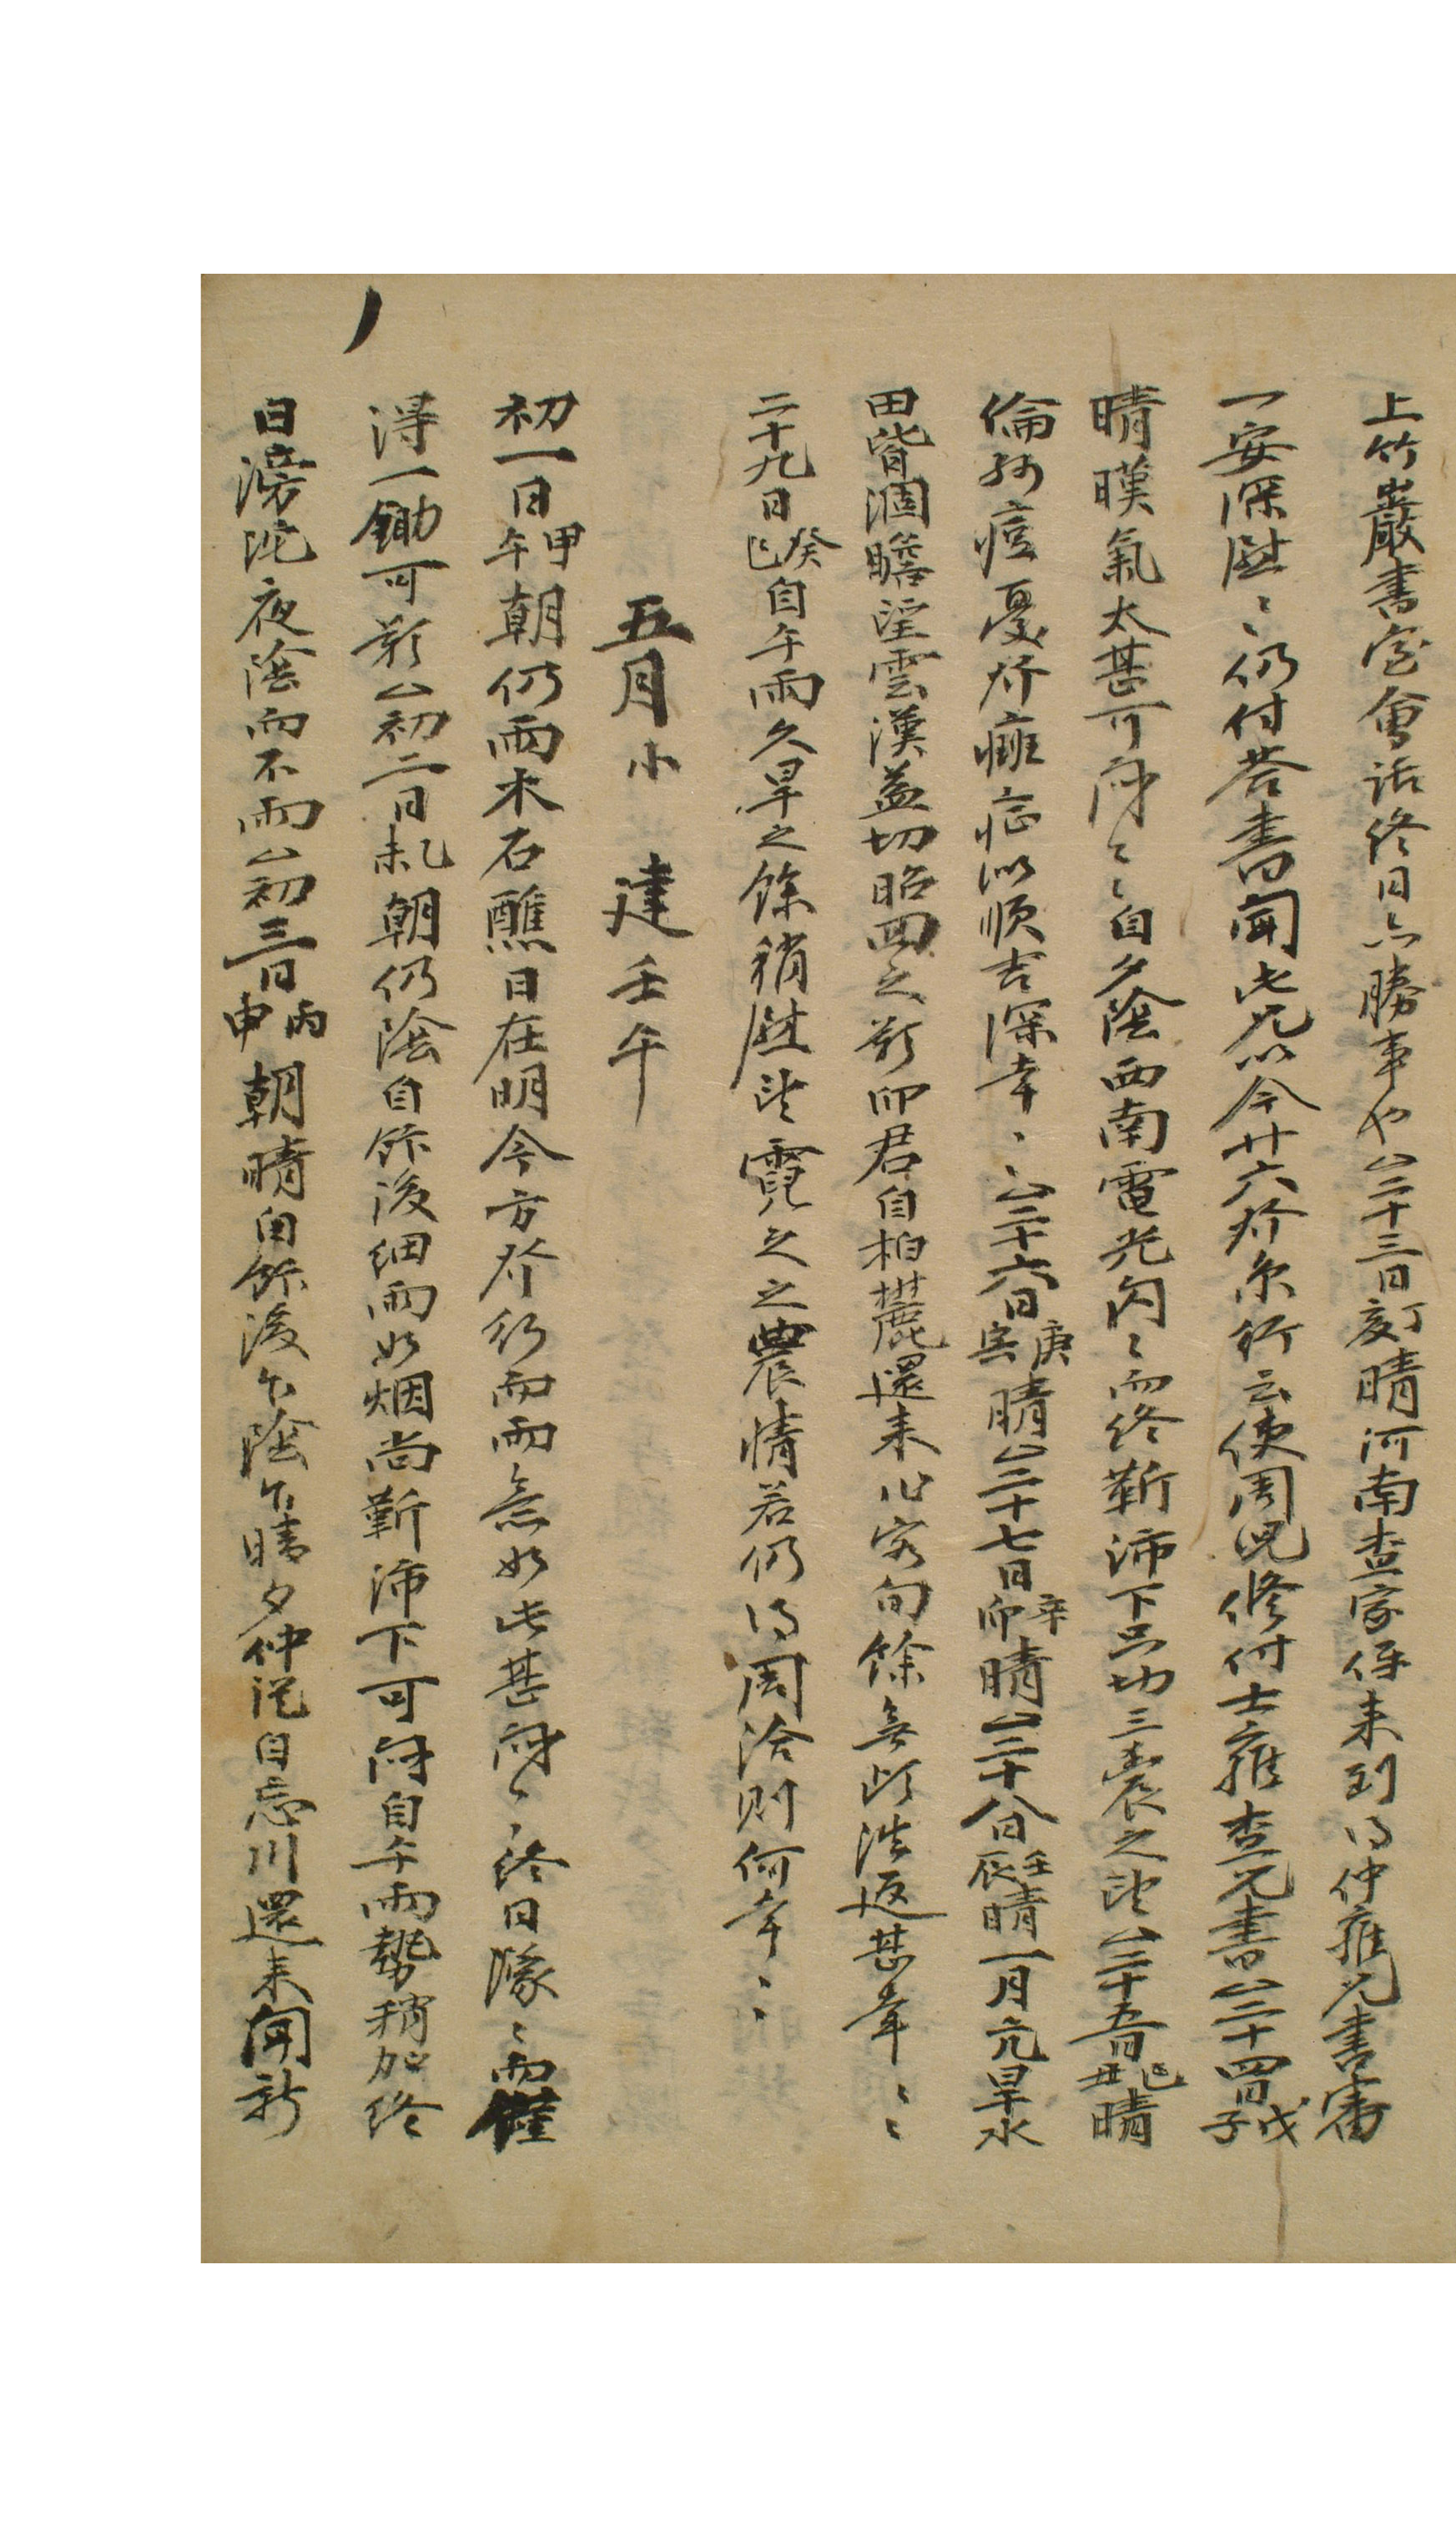 上竹巖書室會話終日亦勝事也△二十三日丁亥晴河南査家伻來到得仲雍兄書審
一安深慰〻仍付答書聞此兄以今廿六發京行云使周兒修付士雍査兄書△二十四日戊子
晴暵氣太甚可悶〻自夕陰西南電光閃〻而終靳沛下只切三農之望△二十五日己丑晴
倫孫痘憂發㾮症似順吉深幸〻△二十六日庚寅晴△二十七日辛卯晴△二十八日壬辰晴一月亢旱水
田皆涸瞻望雲漢益切昭回之歎卯君自柏麓還來作客旬餘無頉浩返甚幸〻
二十九日癸巳自午雨久旱之餘稍慰望霓之之農情若仍得周洽則何幸〻
五月小 建壬午
初一日甲午朝仍雨木石醮日在明今方發行而雨意如此甚悶〻終日濛〻而僅
得一鋤可歎△初二日乙未朝仍陰自飯後細雨如烟尚靳沛下可悶自午雨勢稍加終
日滂沱夜陰而不雨△初三日丙申朝晴自飯後乍陰乍晴夕仲從自忘川還來聞新